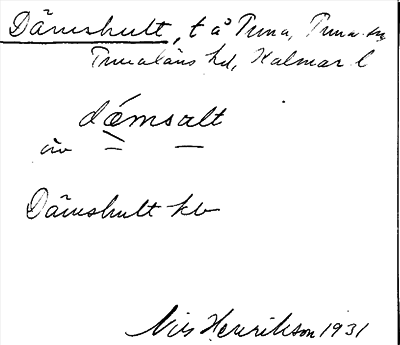 Dämshult, t å Tuna, Tuna sn
Tunaläns hd, Kalmar l
dǽmsalt
Dämshult kb
Nils Henrikson 1931